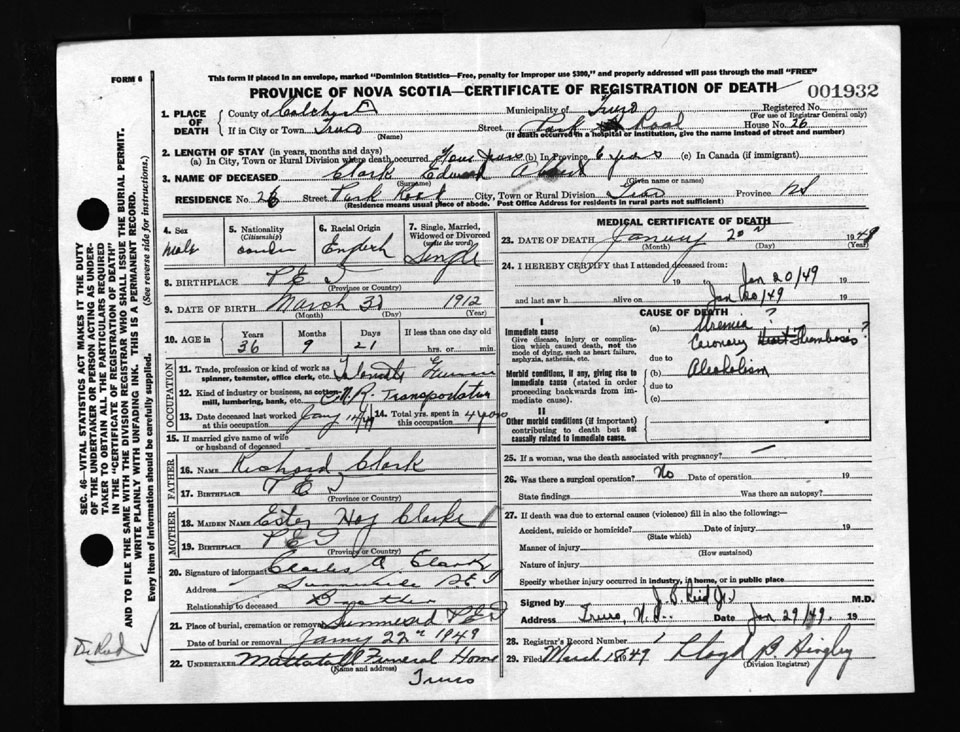 This form if placed in an envelope, marked "Dominion Statistics—Free, penalty for improper use $300," and properly addressed will pass through the mail "FREE"
FORM 6
PROVINCE OF NOVA SCOTIA—CERTIFICATE OF REGISTRATION OF DEATH
001932
1. PLACE OF DEATH
County of Municipality of Truro Registered No.
(For use of Registrar General only)
If in City or Town Truro Street Park Road House No. 26
(Name) (If death occurred in a hospital or institution, give the name instead of street and number)
2. LENGTH OF STAY (in years, months and days)
(a) In City, Town or Rural Division where death occurred Four years (b) In Province 6 years (c) In Canada (if immigrant)
3. NAME OF DECEASED Clark Edward
(Surname) (Given name or names)
RESIDENCE No. 26 Street Park Road City, Town or Rural Division Province NS
(Residence means usual place of abode. Post Office Address for residents in rural parts not sufficient)
4. Sex
male
5. Nationality
(Citizenship)
6. Racial Origin
English
7. Single, Married, Widowed or Divorced
(write the word)
Single
8. BIRTHPLACE P E I
(Province or Country)
9. DATE OF BIRTH March 1912
(Month) (Day) (Year)
10. AGE in
Years Months Days If less than one day old
36 9 21 hrs. or min.
OCCUPATION
11. Trade, profession or kind of work as spinner, teamster, office clerk, etc.
12. Kind of industry or business, as cotton-mill, lumbering, bank, etc. C.N.R. Transportation
13. Date deceased last worked at this occupation
14. Total yrs. spent in this occupation 4 years
15. If married give name of wife or husband of deceased
FATHER
16. NAME Richard Clark
17. BIRTHPLACE P E I
(Province or Country)
MOTHER
18. MAIDEN NAME Ester Clarke
19. BIRTHPLACE P E I
(Province or Country)
20. Signature of informant Charles A Clark
Address Summerside P.E.I
Relationship to deceased Brother
21. Place of burial, cremation or removal P E I
Date of burial or removal 22nd 1949
22. UNDERTAKER Mattatall Funeral Home
(Name and address)
Truro
MEDICAL CERTIFICATE OF DEATH
23. DATE OF DEATH 20 1949
(Month) (Day) (Year)
24. I HEREBY CERTIFY that I attended deceased from:
19 Jan 20/49 19
and last saw h alive on Jan 20/49 19
CAUSE OF DEATH
I
Immediate cause
Give disease, injury or complication which caused death, not the mode of dying, such as heart failure, asphyxia, asthenia, etc.
(a) Uremia ?
Coronary Thrombosis ?
due to
Morbid conditions, if any, giving rise to immediate cause (stated in order proceeding backwards from immediate cause).
(b) Alcoholism
due to
(c)
II
Other morbid conditions (if important) contributing to death but not causally related to immediate cause.
25. If a woman, was the death associated with pregnancy?
26. Was there a surgical operation? No Date of operation 19
State findings Was there an autopsy?
27. If death was due to external causes (violence) fill in also the following:
Accident, suicide or homicide? Date of injury 19
(State which)
Manner of injury
(How sustained)
Nature of injury
Specify whether injury occurred in industry, in home, or in public place
Signed by M.D.
Address Truro, N.S. Date Jan 29/49. 19
28. Registrar's Record Number 1
29. Filed March 49 Lloyd B.
(Division Registrar)
SEC. 46—VITAL STATISTICS ACT MAKES IT THE DUTY
OF THE UNDERTAKER OR PERSON ACTING AS UNDER-
TAKER TO OBTAIN ALL THE PARTICULARS REQUIRED
IN THE "CERTIFICATE OF REGISTRATION OF DEATH"
AND TO FILE THE SAME WITH THE DIVISION REGISTRAR WHO SHALL ISSUE THE BURIAL PERMIT.
WRITE PLAINLY WITH UNFADING INK. THIS IS A PERMANENT RECORD.
Every item of information should be carefully supplied. (See reverse side for instructions.)